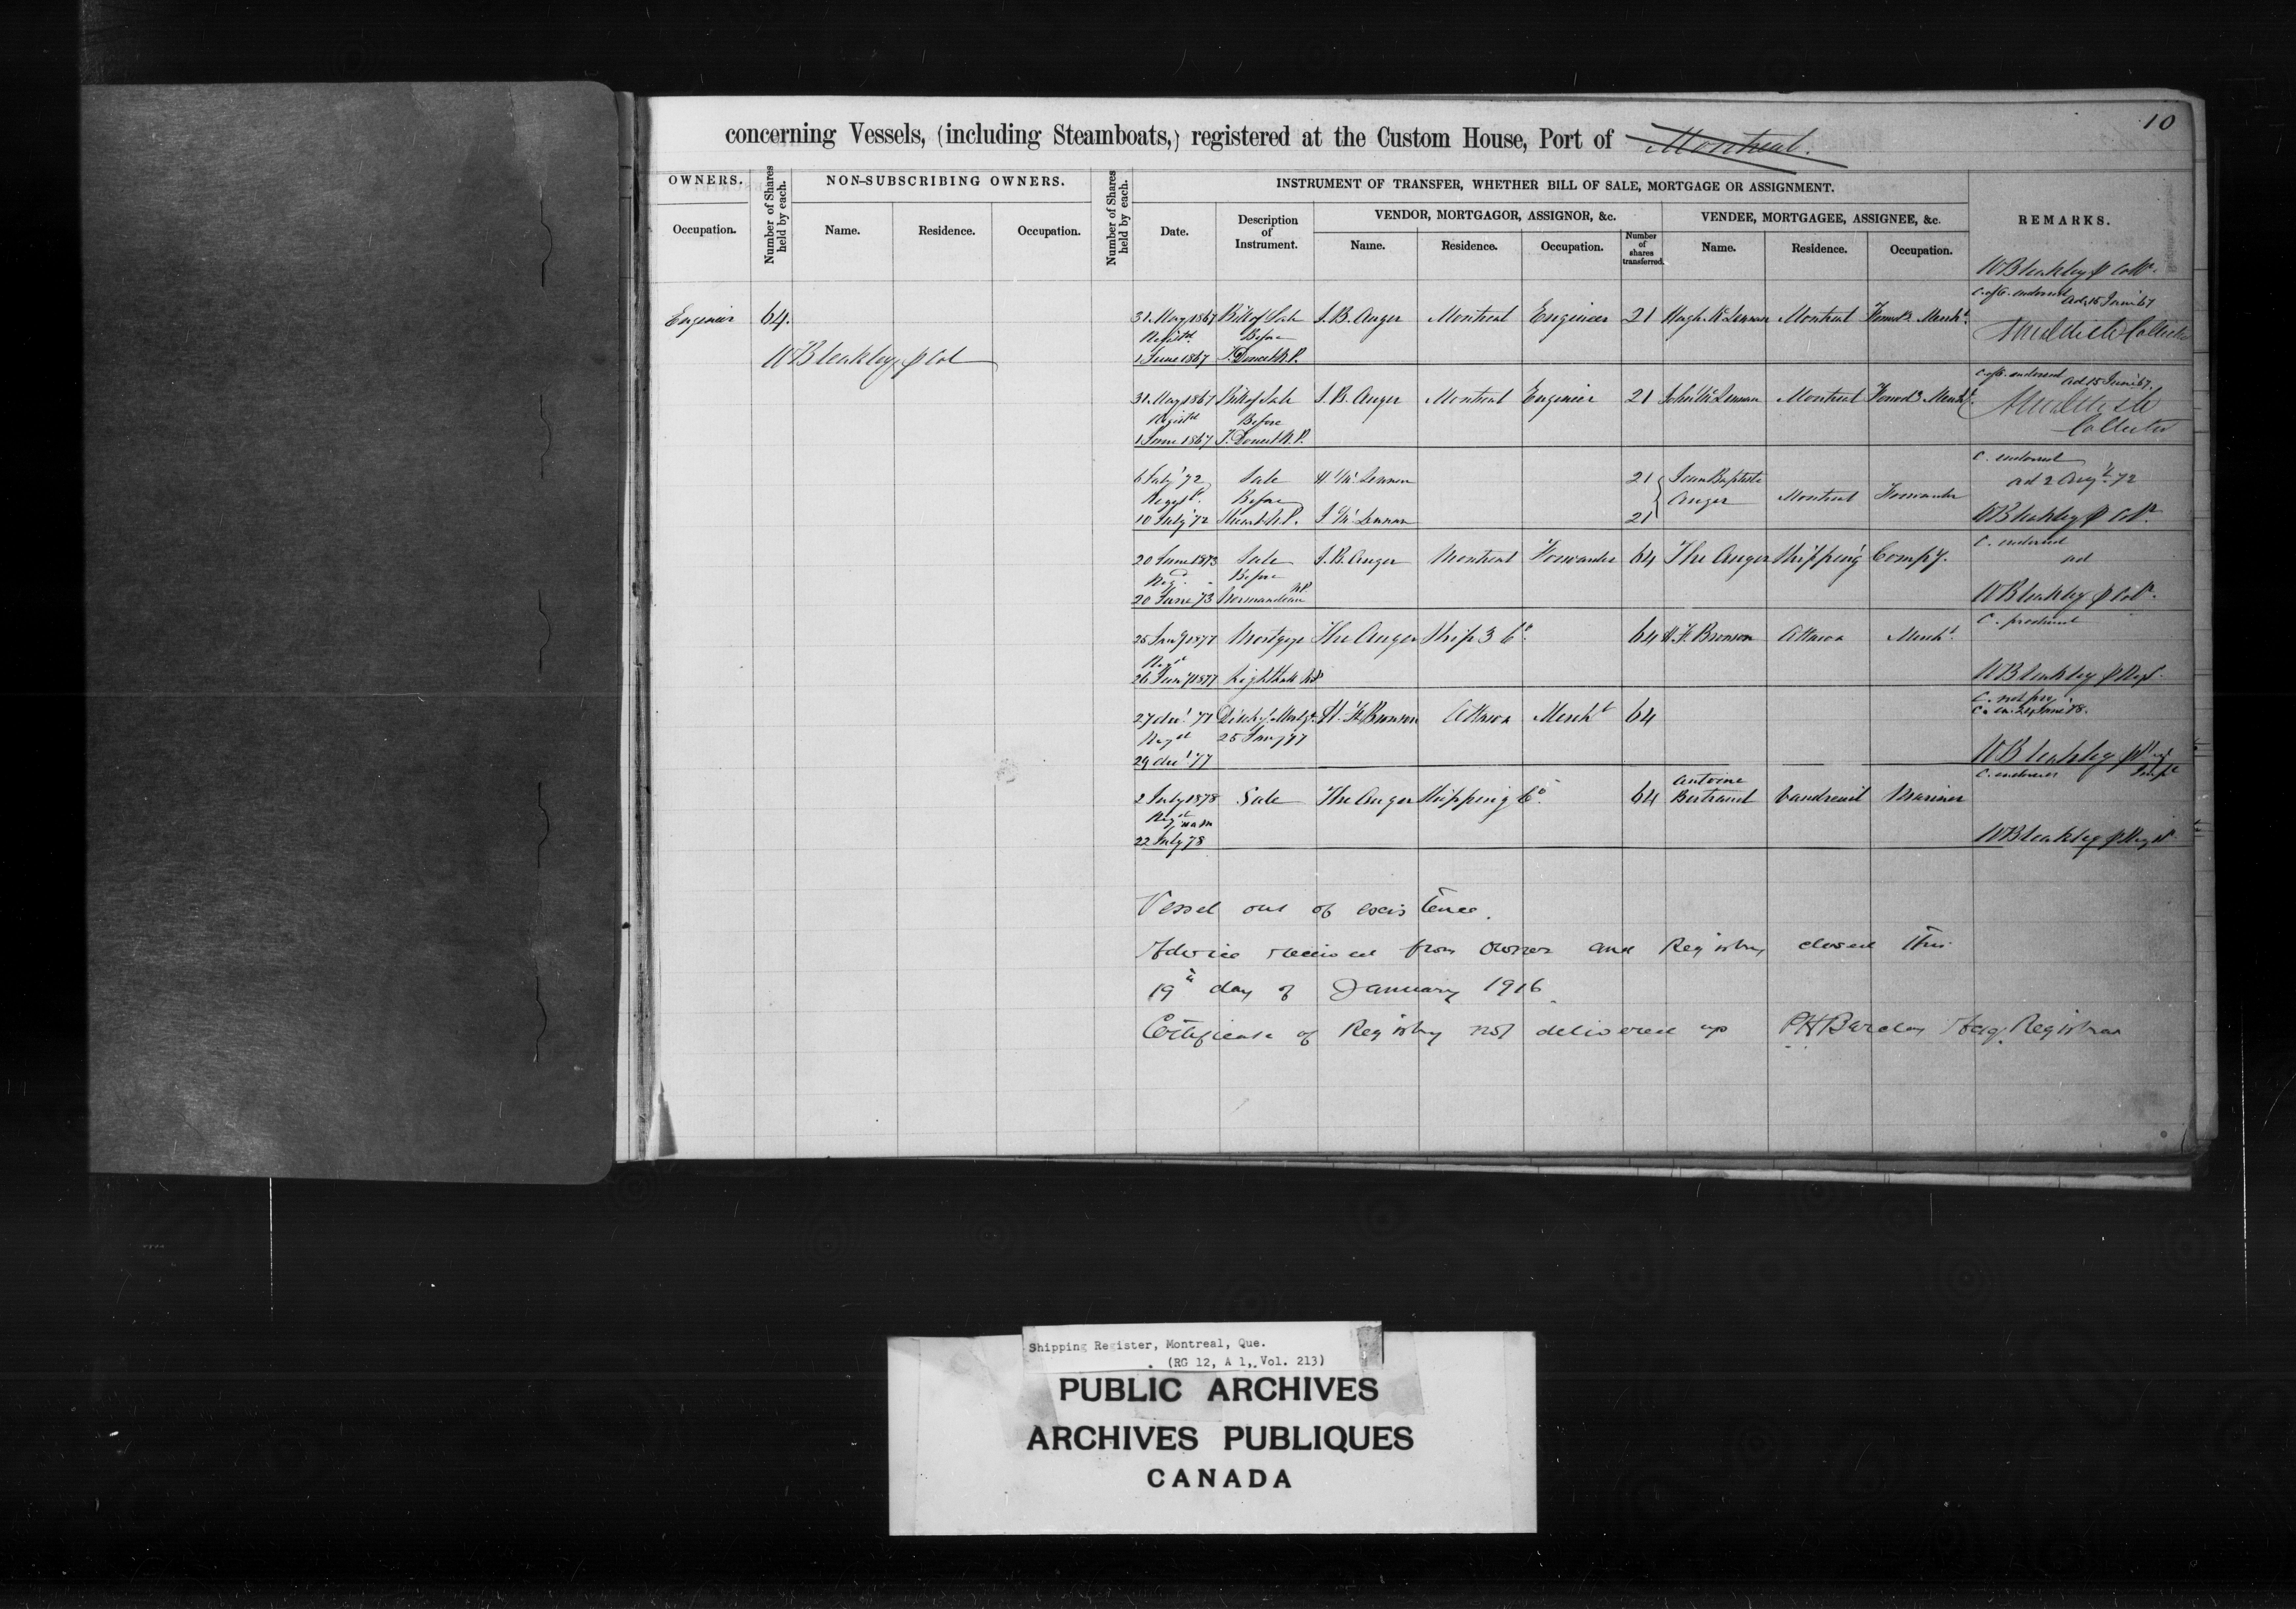 10
concerning Vessels, (including Steamboats,) registered at the Custom House, Port of Montreal.
OWNERS.
Number of Shares held by each.
NON-SUBSCRIBING OWNERS.
Number of Shares held by each.
INSTRUMENT OF TRANSFER, WHETHER BILL OF SALE, MORTGAGE OR ASSIGNMENT.
REMARKS.
VENDOR, MORTGAGOR, ASSIGNOR, &c.
VENDEE, MORTGAGEE, ASSIGNEE, &c.
Occupation. Name. Residence. Occupation. Date. Description of Instrument. Name. Residence. Occupation. Number of shares transferred. Name. Residence. Occupation.
WBleakley p Collr.
C. of R. endorsed ad 15 June 67
Engineer 64. 31 May 1867 Bill of Sale J. B. Auger Montreal Engineer 21 Hugh McLennan Montreal Forwd. Mercht.
Registd Before Collector
1 June 1867 T. Doucet N.P.
WBleakley p Col
C. of R. endorsed ad 15 June 67.
31 May 1867 Bill of Sale J. B. Auger Montreal Engineer 21 John McLennan Montreal Forwd. Mercht.
Registd Before
1 June 1867 T. Doucet N.P. Collector
C. endorsed
6 July '72 Sale H. McLennan 21 Jean Baptiste ad 2 Augt. 72
Regist. Before Auger Montreal Forwarder
10 July '72 N.P. J McLennan 21 WBleakley p Colr.
20 June 1873 Sale J. B. Auger Montreal Forwarder 64 The Auger Shipping Compy. C. endorsed
Regd. Before ad
20 June 73 Normandeau NP. WBleakley p Collr.
25 Jany 1877 Mortgage The Auger Ship'g Co. 64 H. F. Bronson Ottawa Mercht. C. produced
Regd
26 Jany 1877 Lighthall NP WBleakley p Regr.
27 Decr. 77 Dischg. Mortg. H. F. Bronson Ottawa Mercht 64
Regd 25 Jany 77
29 Decr 77 WBleakley p Regr
2 July 1878 Sale The Auger Shipping Co. 64 Antoine Bertrand Vaudreuil Mariner C. endorsed
Regd
22 July 78 WBleakley p Regr
Vessel out of existence.
Advice received from owner and Registry closed this
19th day of January 1916.
Certificate of Registry not delivered up PH Barclay Actg. Registrar
Shipping Register, Montreal, Que.
(RG 12, A 1, Vol. 213)
PUBLIC ARCHIVES
ARCHIVES PUBLIQUES
CANADA